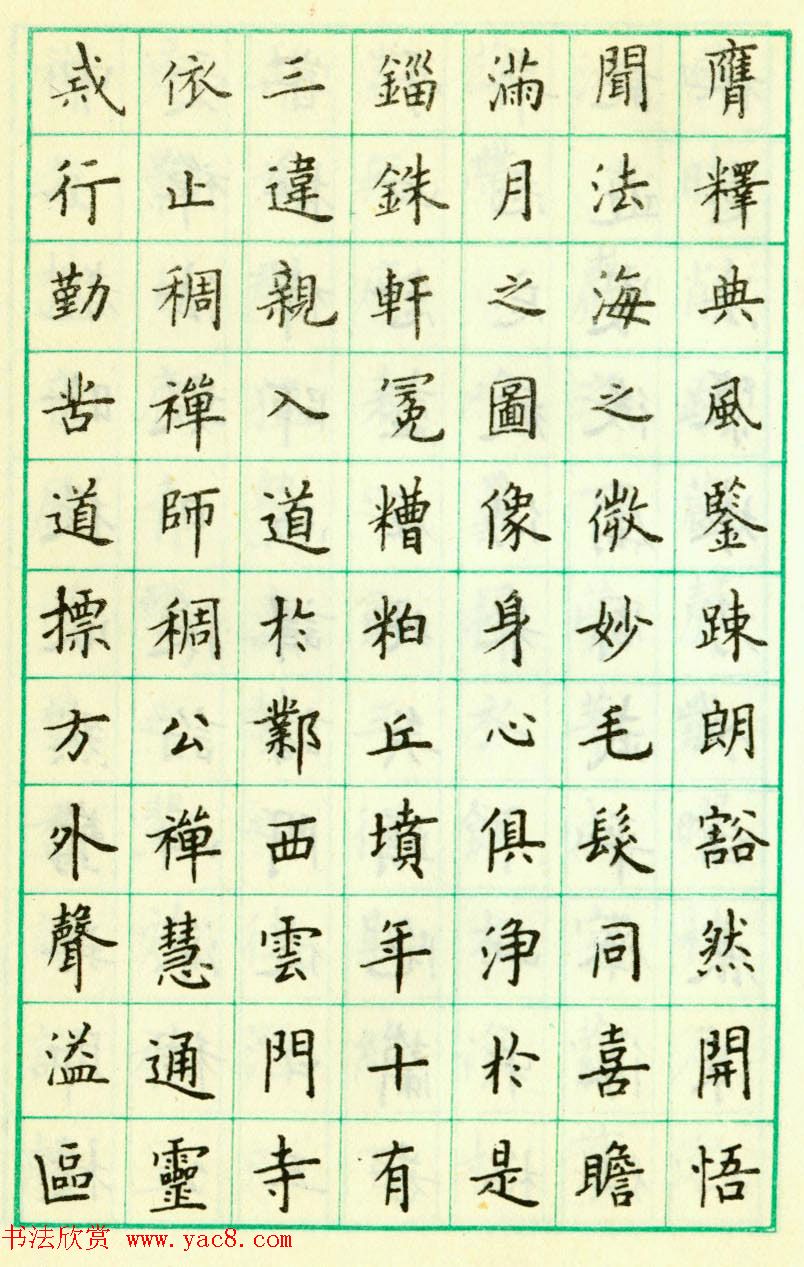 膺釋典風鑒踈朗豁然開悟
聞法海之微妙毛髮同喜瞻
滿月之圖像身心俱淨於是
錙銖軒冕糟粕丘墳年十有
三違親入道於鄴西雲門寺
依止稠禪師稠公禪慧通靈
戒行勤苦道摽方外聲溢區
书法欣赏 www.yac8.com